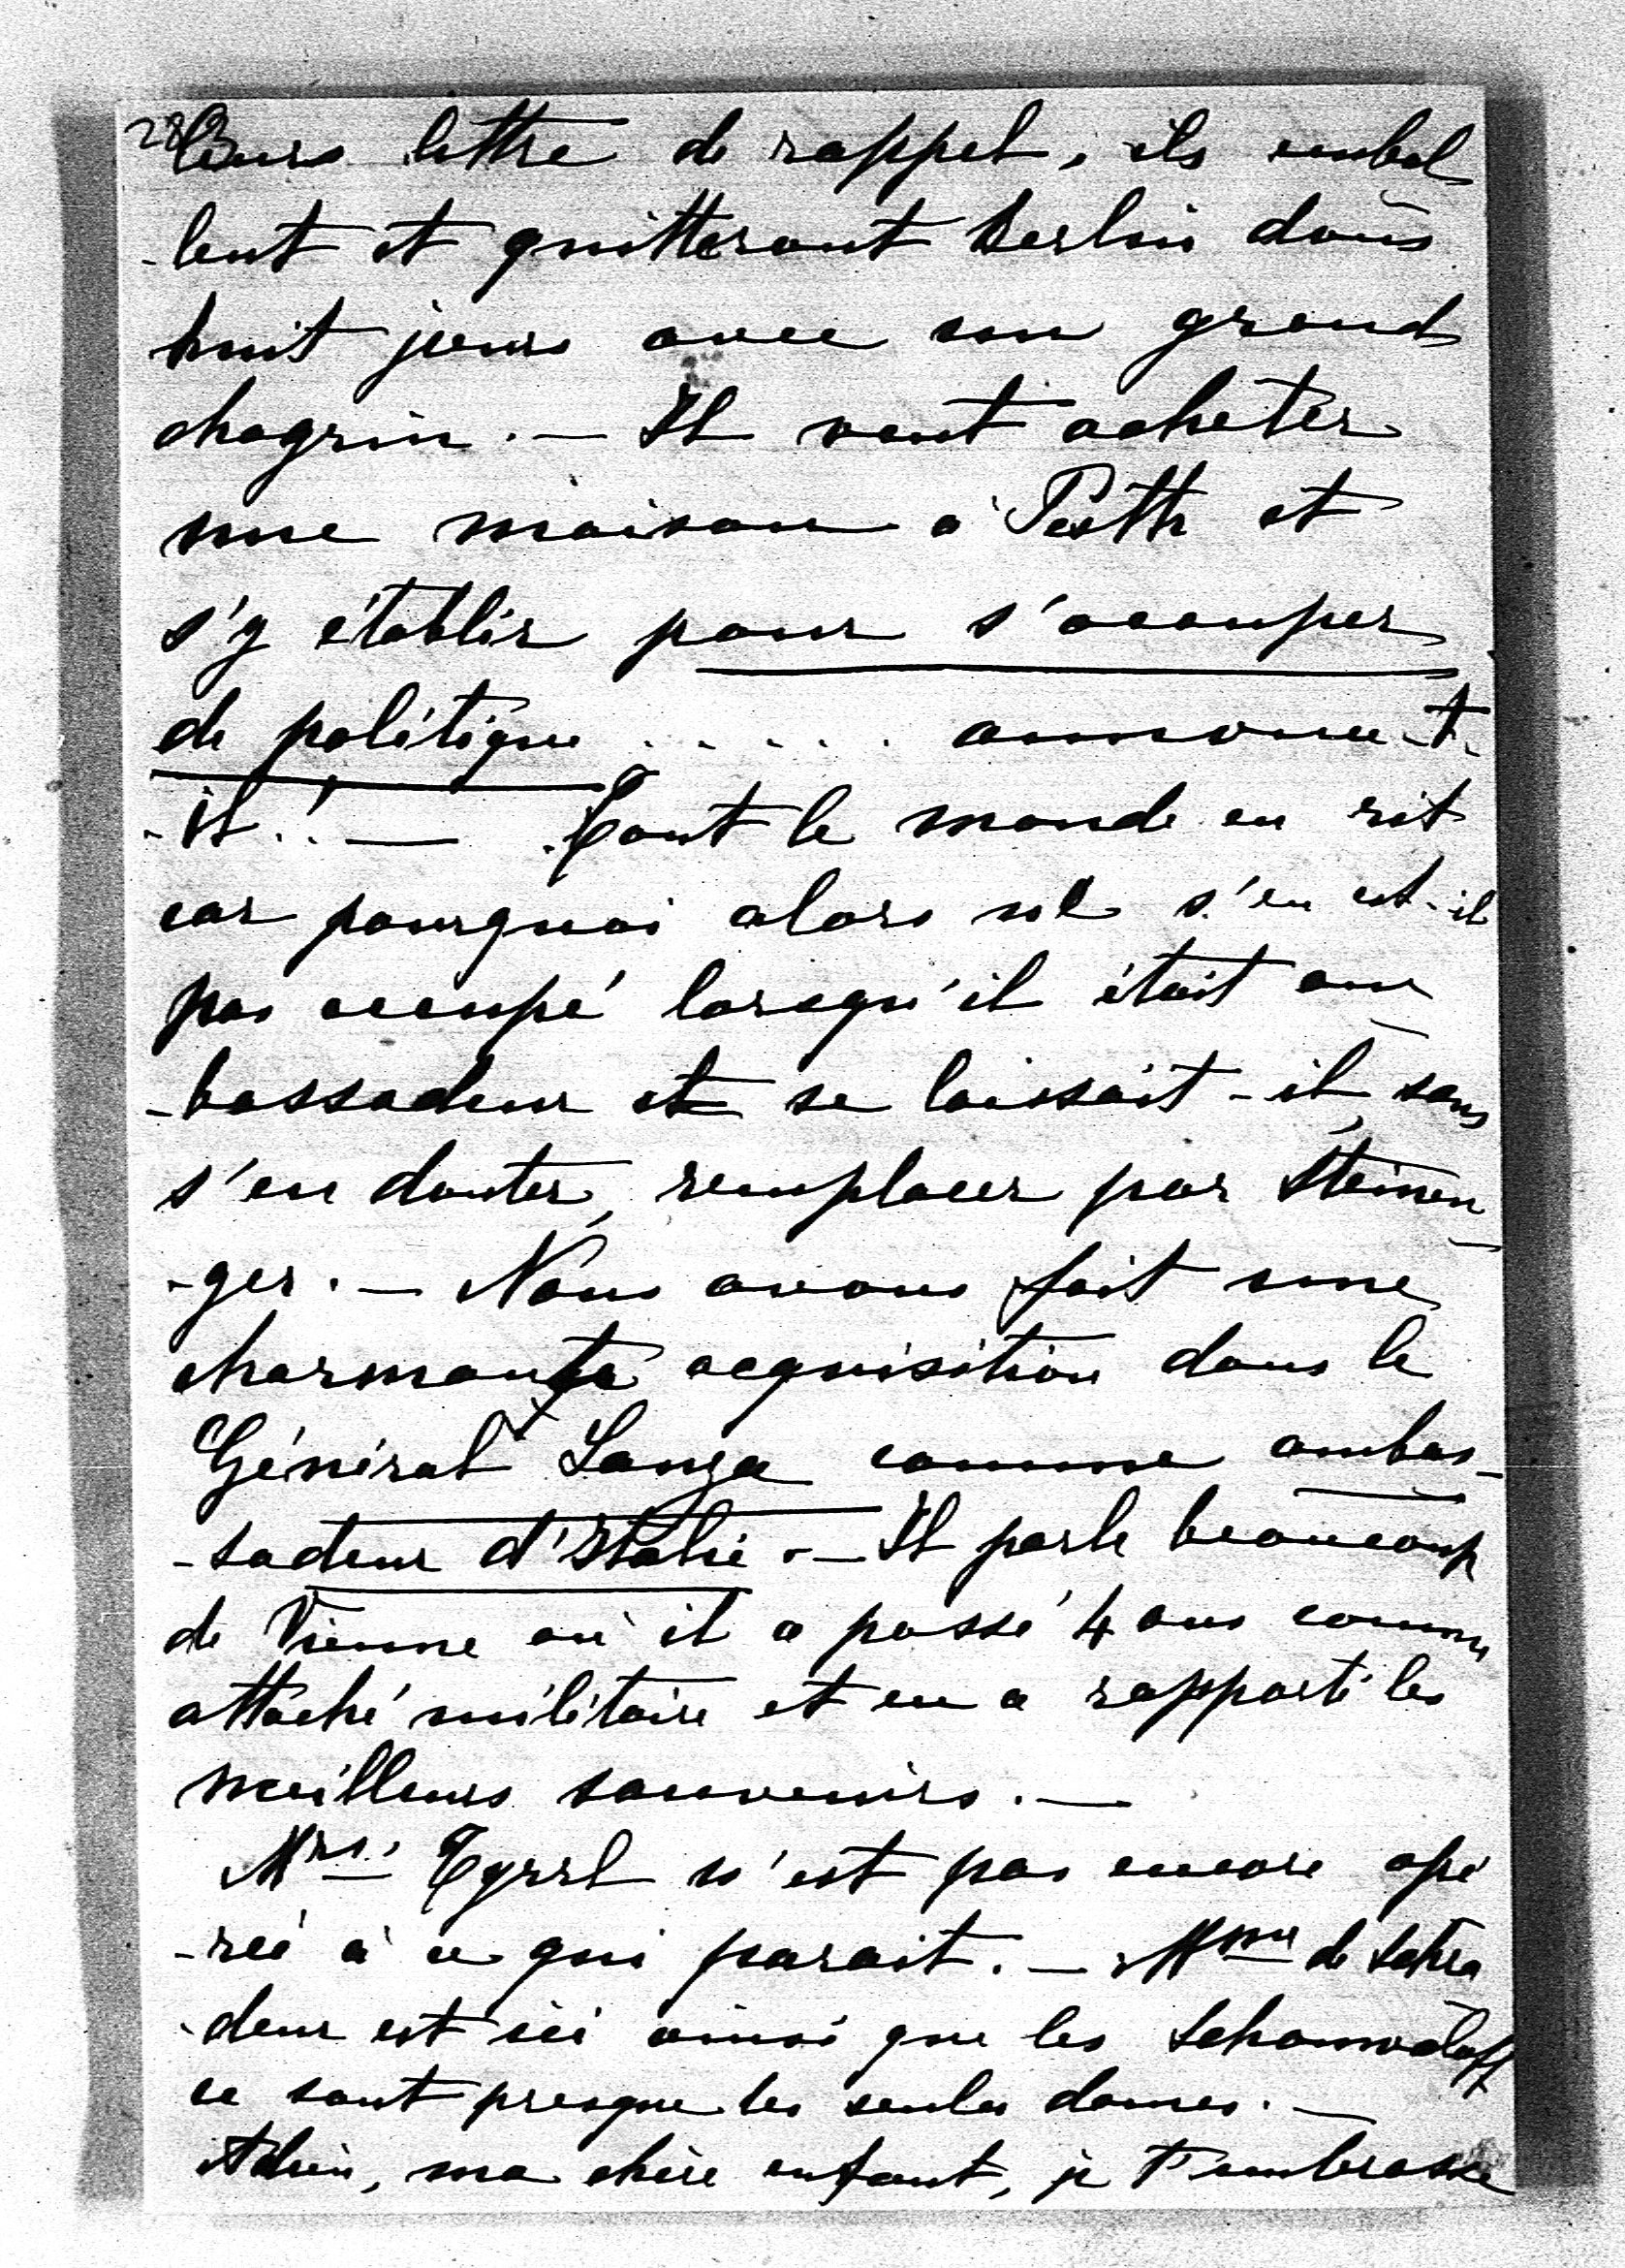 283
leurs lettre de rappel, ils embal
-lent et quitteront Berlin dans
huit jours avec un grand
chagrin. — Il veut acheter
une maison à Pesth et
s'y établir pour s'occuper
de politique ..... annonce-t-
-il! — Tout le monde en rit
car pourquoi alors ne s'en est-il
pas occupé lorsqu'il était am
-bassadeur et se laissait-il, sans
s'en douter, remplacer par Steinin
-ger. — Nous avons fait une
charmante acquisition dans le
Général Lanza comme ambas-
-sadeur d'Italie. — Il parle beaucoup
de Vienne où il a passé 4 ans comme
attaché militaire et en a rapporté les
meilleurs souvenirs. —
Mrs. Tyrrl n'est pas encore opé
-rée à ce qui parait. — Mme de Schra
-der est ici ainsi que les Schouvaloff
ce sont presque les seules dames. —
Adieu, ma chère enfant, je t'embrasse